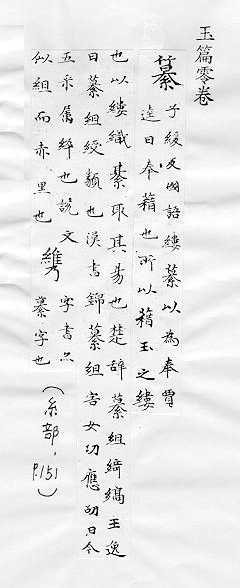 玉篇零卷
綦 子緩反國語縷綦以為奉賈
逵曰奉藉也所以藉玉之縷
也以縷織綦取其易也楚辞綦組綺縞王逸
曰綦組綬類也漢書錦綦組害女功應劭曰今
五采属綷也說文
似組而赤黑也
䌣 字書亦
綦字也(糸部,P.151)